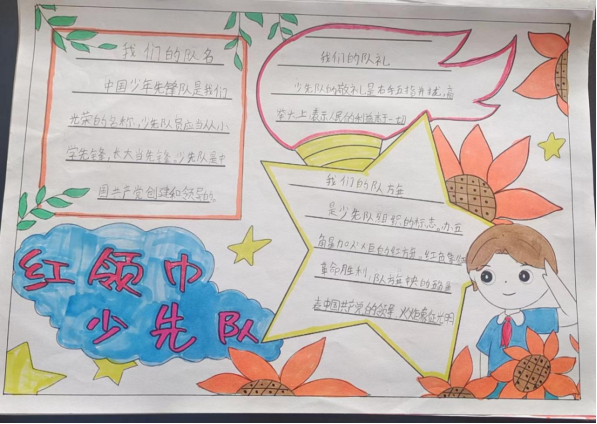 我们的队名
中国少年先锋队是我们
光荣的名称,少先队员应当从小
学先锋,长大当先锋,少先队是中
国共产党创建和领导的
我们的队礼
少先队的敬礼是右手五指并拢,高
举头上,表示人民的利益高于一切
我们的队旗
是少先队组织的标志。
角星加火炬的红旗,红色象征
革命胜利,队旗中的
表中国共产党的领导,火炬象征光明
红领巾
少先队